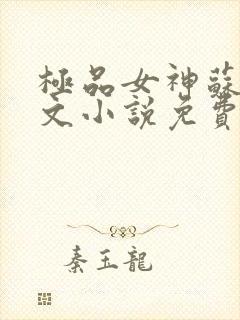 極品女神蘇
文小說免費
秦玉龍